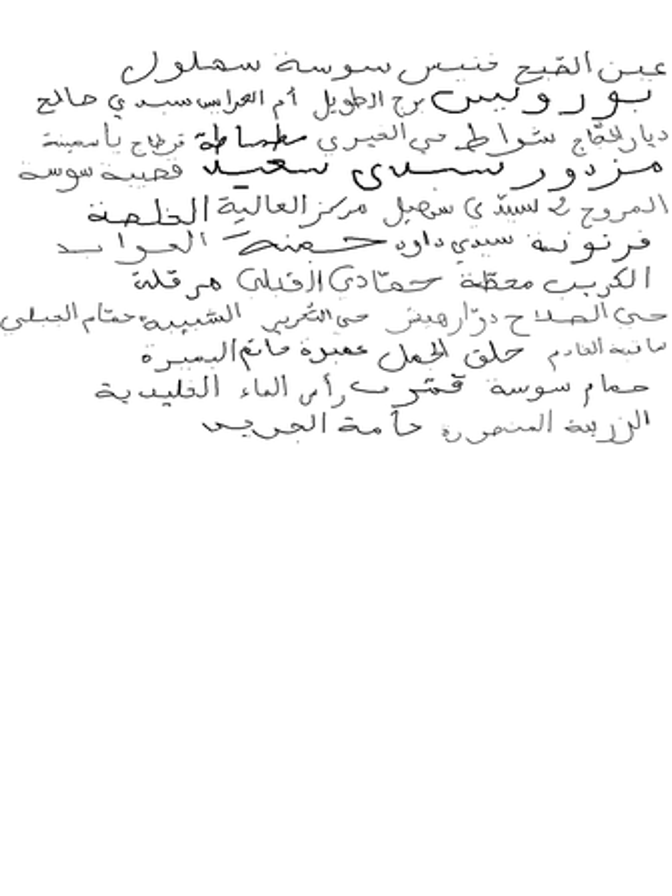 عين القبح خنيس سوسة سهلول
بوروليس برج الطويل أم العرايس سيدي صالح
ديار الحجّاج شواط حي الخيري مطماطة قرطاج ياسمينة
مزدور سيدي سعيد قصيبة سوسة
المروج 2 سيدي سهيل مركز العالية الخلصة
فرنونة سيدي داود حسينة العوابد
الكريب محطة حمّادي القبلي هرقلة
حي الصلاح دوّار هيشر حي التحرير الشبيبة حمّام الجبلي
ساقية الخادم حلق الجمل عميرة حاتم البميرة
حمام سوسة قمّرت رأس الماء الخليدية
الزريبة المنصورة حامة الجريد